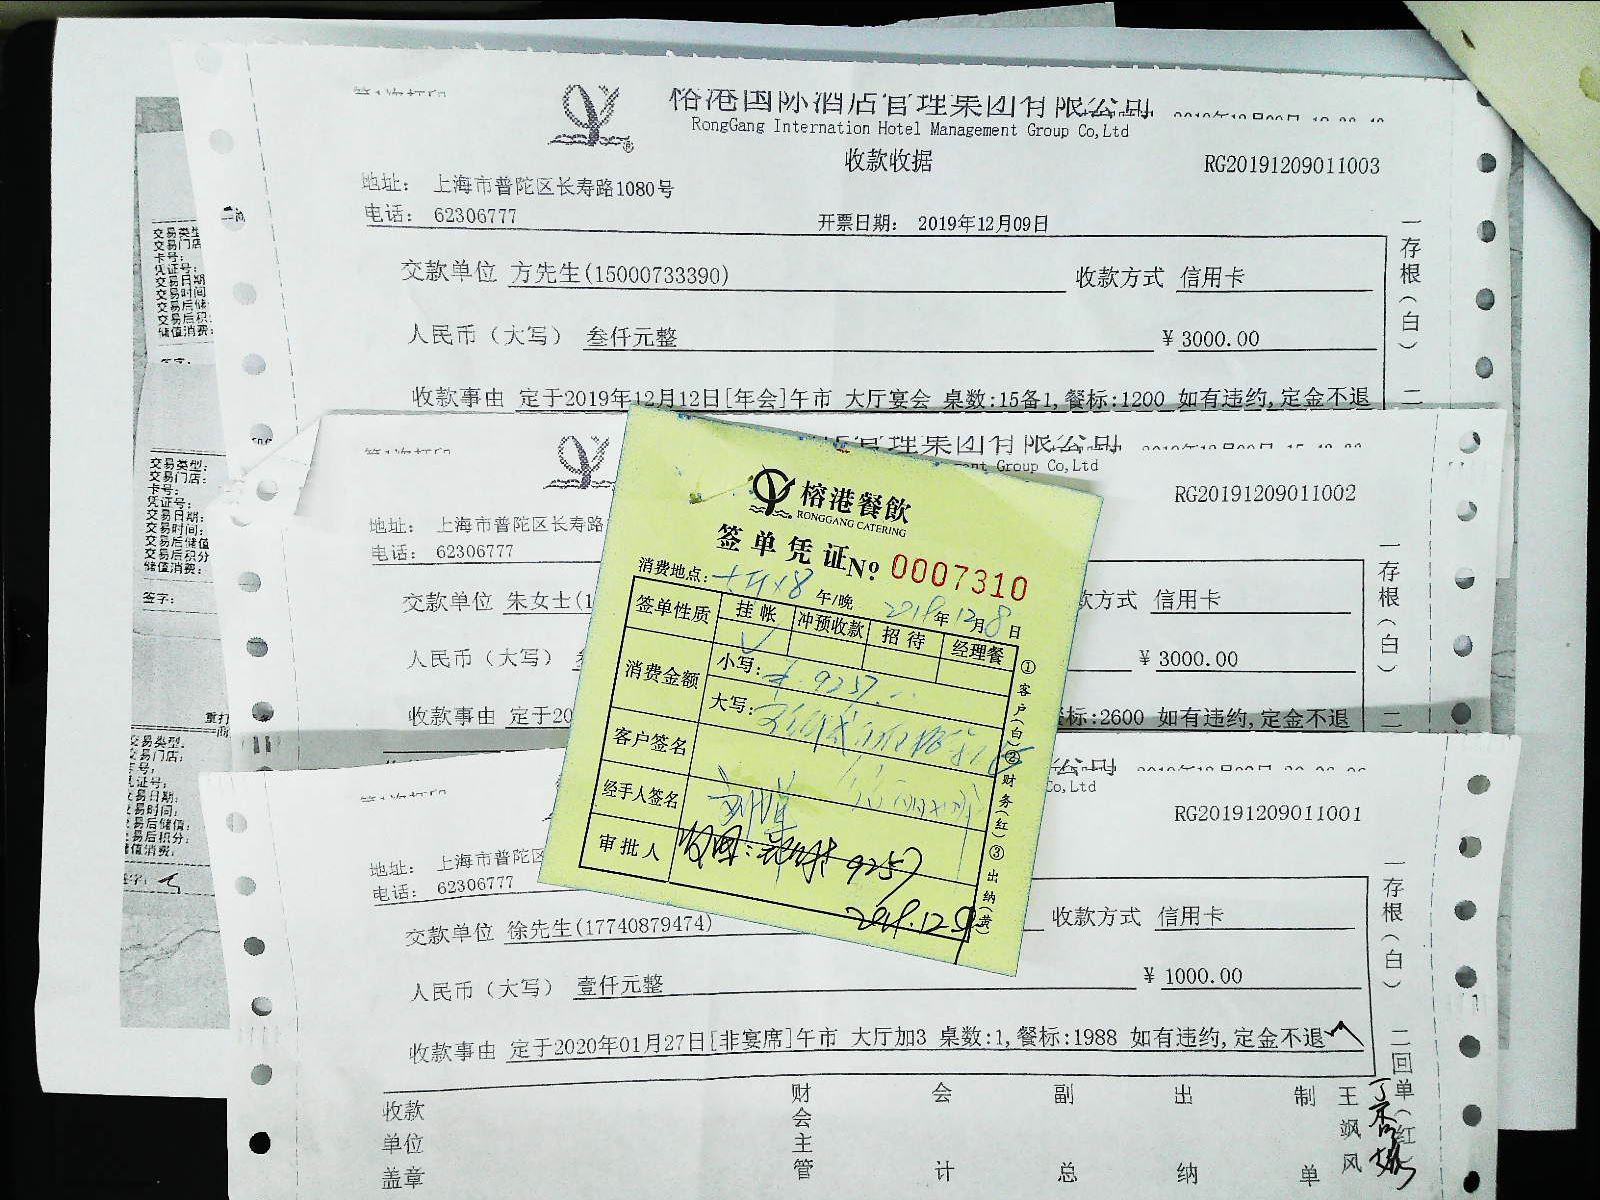 榕港国际酒店管理集团有限公司
RongGang Internation Hotel Management Group Co,Ltd
收款收据
RG20191209011003
地址： 上海市普陀区长寿路1080号
电话： 62306777
开票日期： 2019年12月09日
交款单位 方先生(15000733390) 收款方式 信用卡
人民币（大写） 叁仟元整 ￥3000.00
收款事由 定于2019年12月12日[年会]午市 大厅宴会 桌数:15备1,餐标:1200 如有违约,定金不退
一存根（白）二
管理集团有限公司
Group Co,Ltd
RG20191209011002
地址： 上海市普陀区长寿路
电话： 62306777
交款单位 朱女士(1 款方式 信用卡
人民币（大写） ￥3000.00
收款事由 定于20 餐标:2600 如有违约,定金不退
一存根（白）二
Co,Ltd
RG20191209011001
地址： 上海市普陀区
电话： 62306777
交款单位 徐先生(17740879474) 收款方式 信用卡
人民币（大写） 壹仟元整 ￥1000.00
收款事由 定于2020年01月27日[非宴席]午市 大厅加3 桌数:1,餐标:1988 如有违约,定金不退
一存根（白）二回单（红）
收款单位盖章 财会主管 会计 副总 出纳 制单 王飒风
榕港餐飲
RONGGANG CATERING
签单凭证 № 0007310
消费地点： 午/晚 2019年12月8日
签单性质 挂帐 冲预收款 招待 经理餐
消费金额 小写：￥9257
大写：
客户签名
经手人签名
审批人 9257
2019.12.9
①客户（白）②财务（红）③出纳（黄）
交易类型
交易门店
卡号：
凭证号：
交易日期
交易时间
交易后储
交易后积
储值消费：
签字：
交易类型：
交易门店：
卡号：
凭证号：
交易日期：
交易时间：
交易后储值
交易后积分
储值消费：
签字：
重打
交易类型：
交易门店：
卡号：
凭证号：
交易日期：
交易时间：
交易后储值：
交易后积分：
储值消费：
签字：